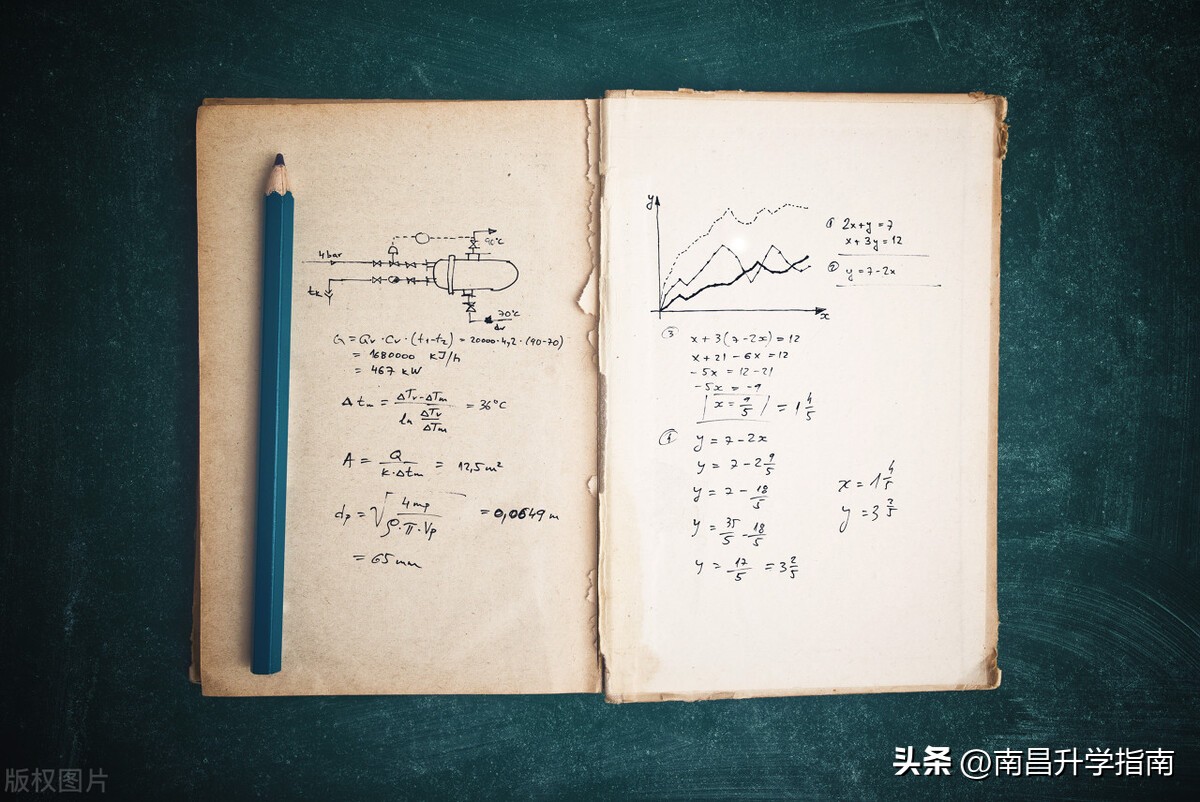 4 bar
90°C
tk
70°C
G = Qv · Cv · (t1-t2) = 20000·4,2·(90-70)
= 1680000 KJ/h
= 467 kW
Δtm = (ΔTv-ΔTm)/(ln ΔTv/ΔTm) = 36°C
A = Q/(K·Δtm) = 12,5 m²
dp = √(4mp/(ρ·π·Vp)) = 0,0649 m
= 65 mm
y
x
① 2x+y=7
x+3y=12
② y=7-2x
③ x+3(7-2x)=12
x+21-6x=12
-5x=12-21
-5x=-9
x=9/5 = 1 4/5
④ y=7-2x
y=7-2 9/5
y=7-18/5
y=35/5-18/5
y=17/5 = 3 2/5
x=1 4/5
y=3 2/5
版权图片
头条 @南昌升学指南